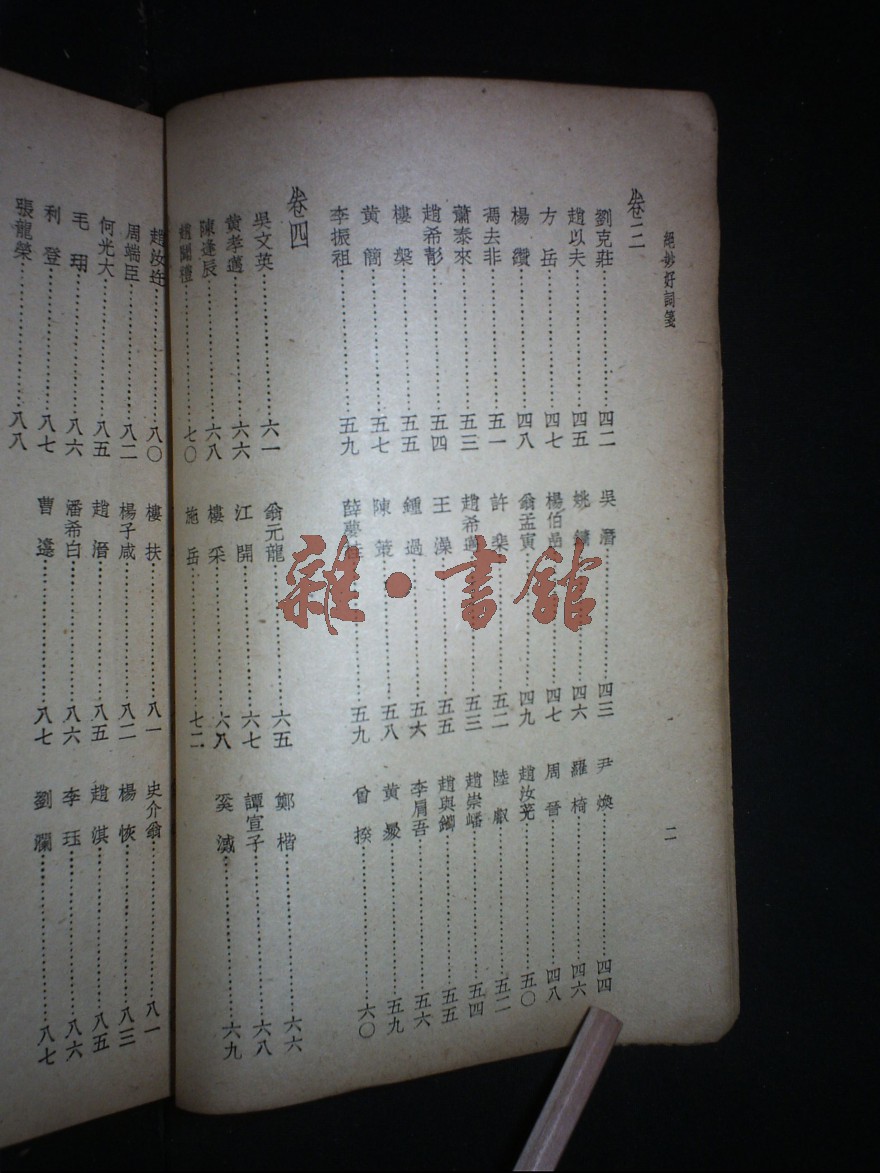 絕妙好詞箋
二
卷三
劉克莊……四二 吳潛……四三 尹煥……四四
趙以夫……四五 姚鏞……四六 羅椅……四六
方岳……四七 楊伯嵒……四七 周晉……四八
楊纘……四八 翁孟寅……四九 趙汝茪……五〇
馮去非……五一 許棐……五二 陸叡……五二
蕭泰來……五三 趙希邁……五三 趙崇嶓……五四
趙希彰……五四 王澡……五五 趙與鋤……五五
樓槃……五五 鍾過……五六 李肩吾……五六
黃簡……五七 陳策……五八 黃昇……五九
李振祖……五九 薛夢桂……五九 曾揆……六〇
卷四
吳文英……六一 翁元龍……六五 鄭楷……六六
黃孝邁……六六 江開……六七 譚宣子……六八
陳逢辰……六八 樓采……六八 奚㴒……六九
趙聞禮……七〇 施岳……七二
趙汝迕……八〇 樓扶……八一 史介翁……八一
周端臣……八二 楊子咸……八二 楊恢……八三
何光大……八五 趙溍……八五 趙淇……八五
毛珝……八六 潘希白……八六 李珏……八六
利登……八七 曹邍……八七 劉瀾……八七
張龍榮……八八
雜·書館